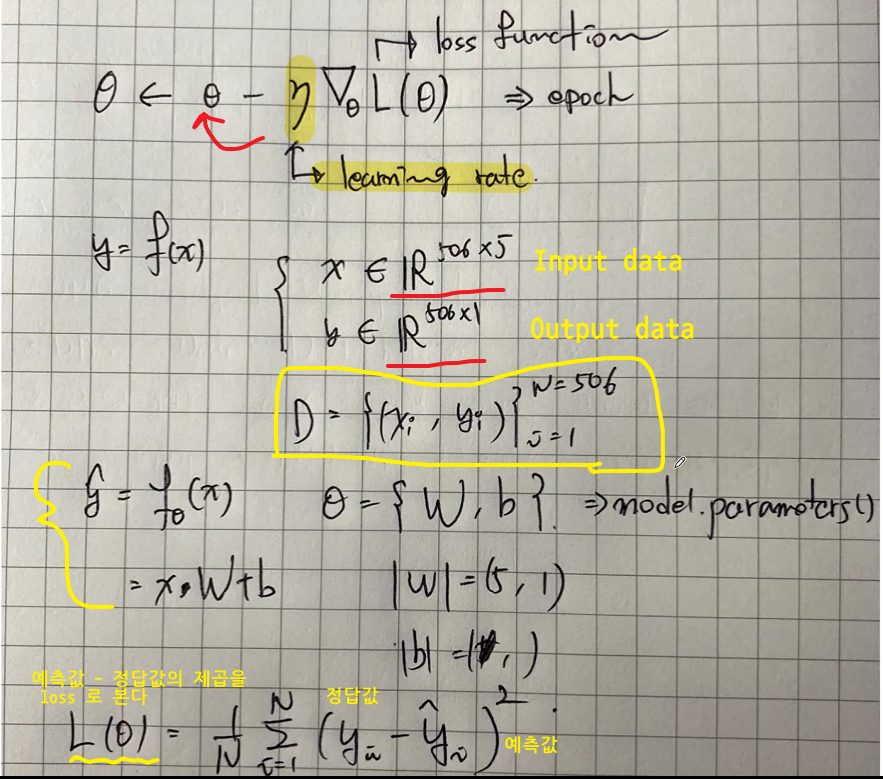 ↱ loss function
θ ← θ - η ∇θ L(θ) ⇒ epoch
↳ learning rate.
y = f(x)
x ∈ ℝ^506×5 Input data
y ∈ ℝ^506×1 Output data
D = {(xᵢ, yᵢ)}^N=506_i=1
ŷ = fθ(x) θ = {W, b}. ⇒ model.parameters()
= x·W+b |W| = (5, 1)
|b| = (1, )
예측값 - 정답값의 제곱을
loss 로 본다
정답값
L(θ) = 1/N Σ^N_i=1 (yᵢ - ŷᵢ)².
예측값